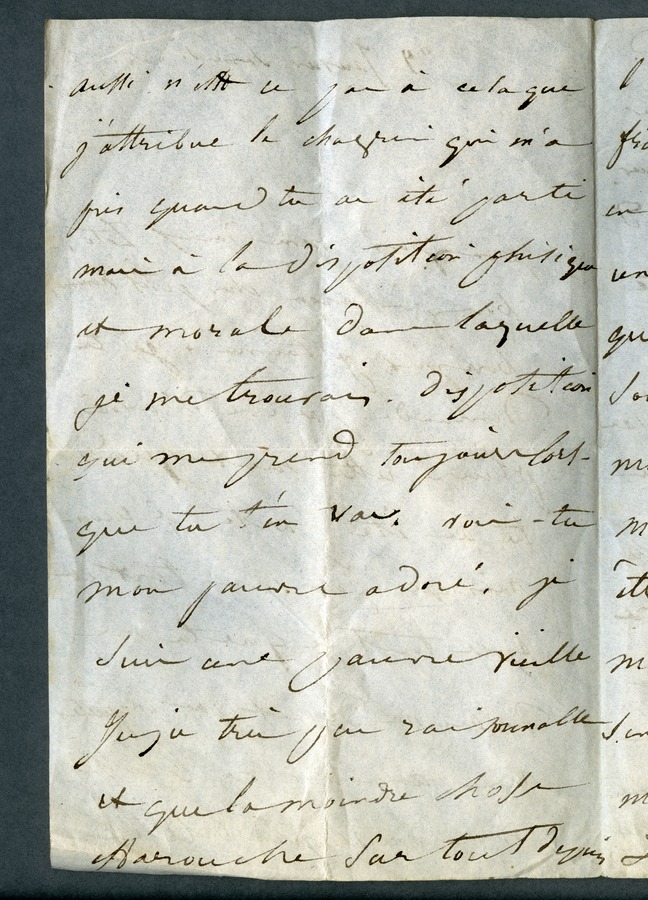 aussi n'est ce pas à cela que
j'attribue le chagrin qui m'a
pris quand tu as été parti
mais à la disposition phisique
et morale dans laquelle
je me trouvais. disposition
qui me prend toujours lors-
que tu t'en vas. vois-tu
mon pauvre adoré, je
suis une pauvre vieille
Juju très peu raisonnable
et que la moindre chose
éfarouche surtout depuis